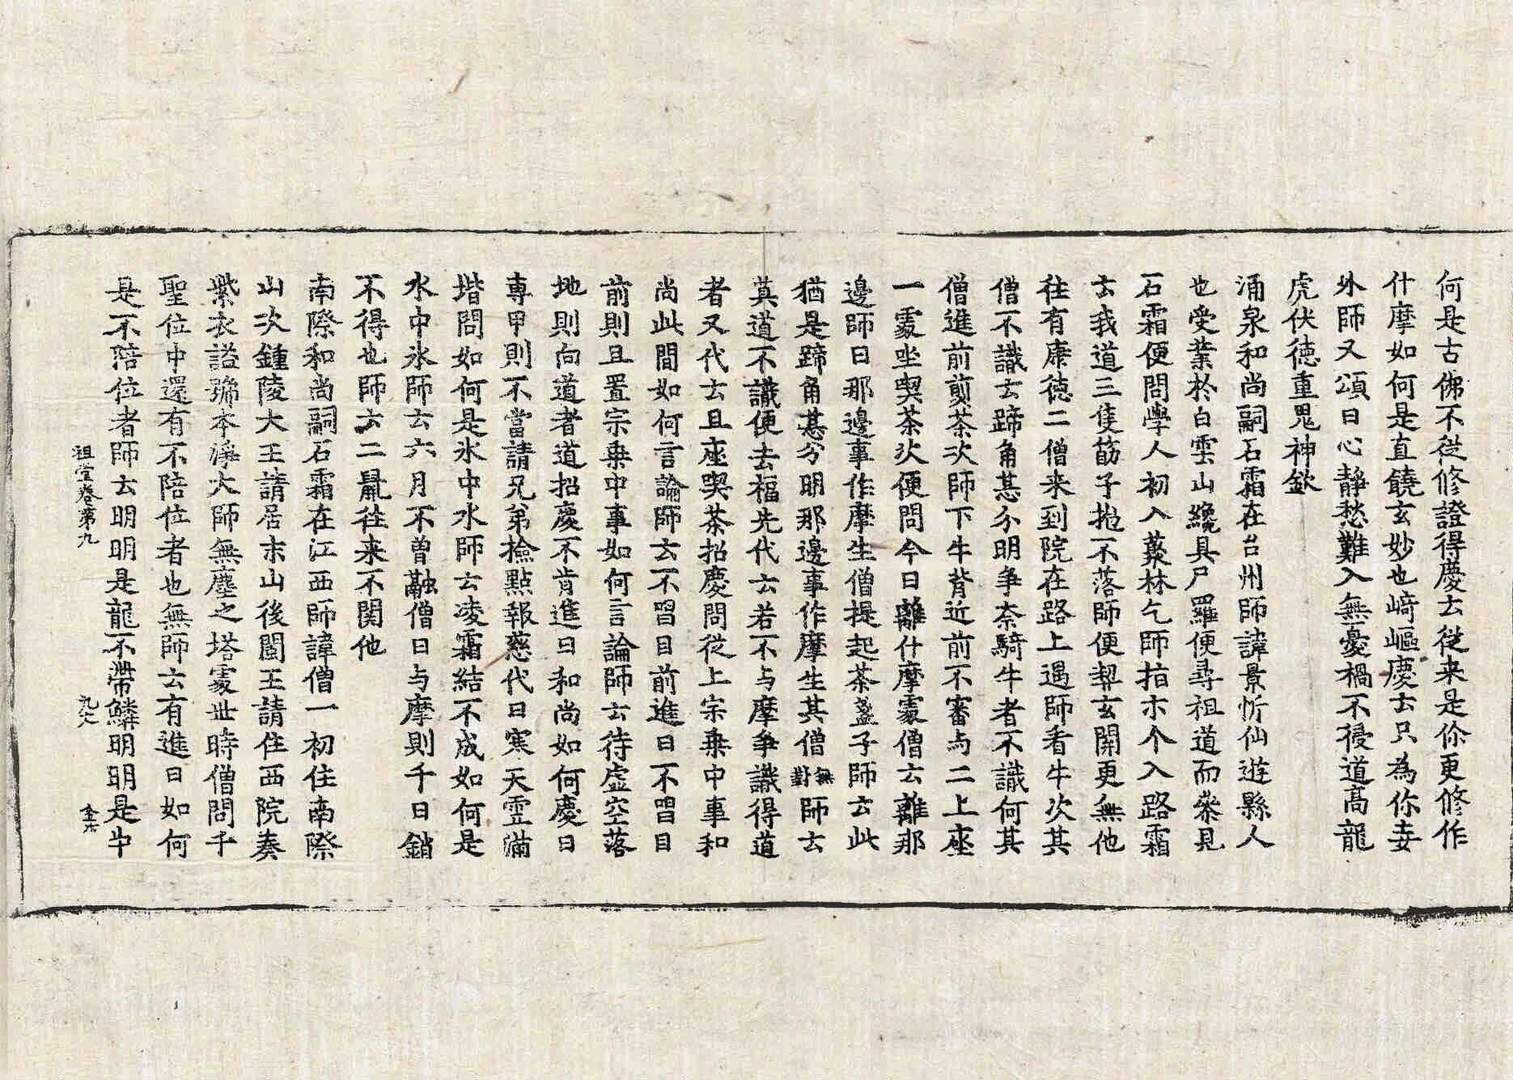 何是古佛不從修證得慶云從来是你更修作
什摩如何是直饒玄妙也﨑嶇慶云只為你幸
外師又頌曰心靜愁難入無憂禍不侵道高龍
虎伏徳重鬼神欽
涌泉和尚嗣石霜在台州師諱景忻仙遊縣人
也受業於白雲山纔具尸羅便尋祖道而叅見
石霜便問學人初入藂林乞師指示个入路霜
云我道三隻筯子抛不落師便契玄關更無他
往有康徳二僧来到院在路上遇師看牛次其
僧不識云蹄角甚分明爭奈騎牛者不識何其
僧進前煎茶次師下牛背近前不審与二上座
一處坐喫茶次便問今日離什摩處僧云離那
邊師曰那邊事作摩生僧提起茶盞子師云此
猶是蹄角甚分明那邊事作摩生其僧無對師云
莫道不識便去福先代云若不与摩爭識得道
者又代云且座喫茶招慶問從上宗乗中事和
尚此間如何言論師云不曽目前進曰不曽目
前則且置宗乗中事如何言論師云待虚空落
地則向道者道招慶不肯進曰和尚如何慶曰
專甲則不當請兄弟撿點報慈代曰寒天雪滿
堦問如何是氷中水師云凌霜結不成如何是
水中氷師云六月不曽融僧曰与摩則千日銷
不得也師云二鼠往来不関他
南際和尚嗣石霜在江西師諱僧一初住南際
山次鍾陵大王請居末山後閩王請住西院奏
紫衣謚號本淨大師無塵之塔處世時僧問千
聖位中還有不陪位者也無師云有進曰如何
是不陪位者師云明明是龍不帶鱗明明是牛
祖堂卷第九